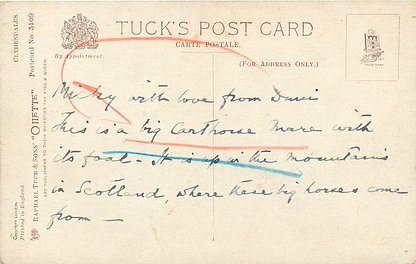 TUCK'S POST CARD
CARTE POSTALE.
By Appointment.
(FOR ADDRESS ONLY.)
TRADE MARK
CLYDESDALES
Postcard No. 3109
RAPHAEL TUCK & SONS' "OILETTE"
ART PUBLISHERS TO THEIR MAJESTIES THE KING & QUEEN.
Printed in England.
Micky with love from
This is a big Carthorse Mare with
its foal - It is up in the mountains
in Scotland, where these big horses come
from -